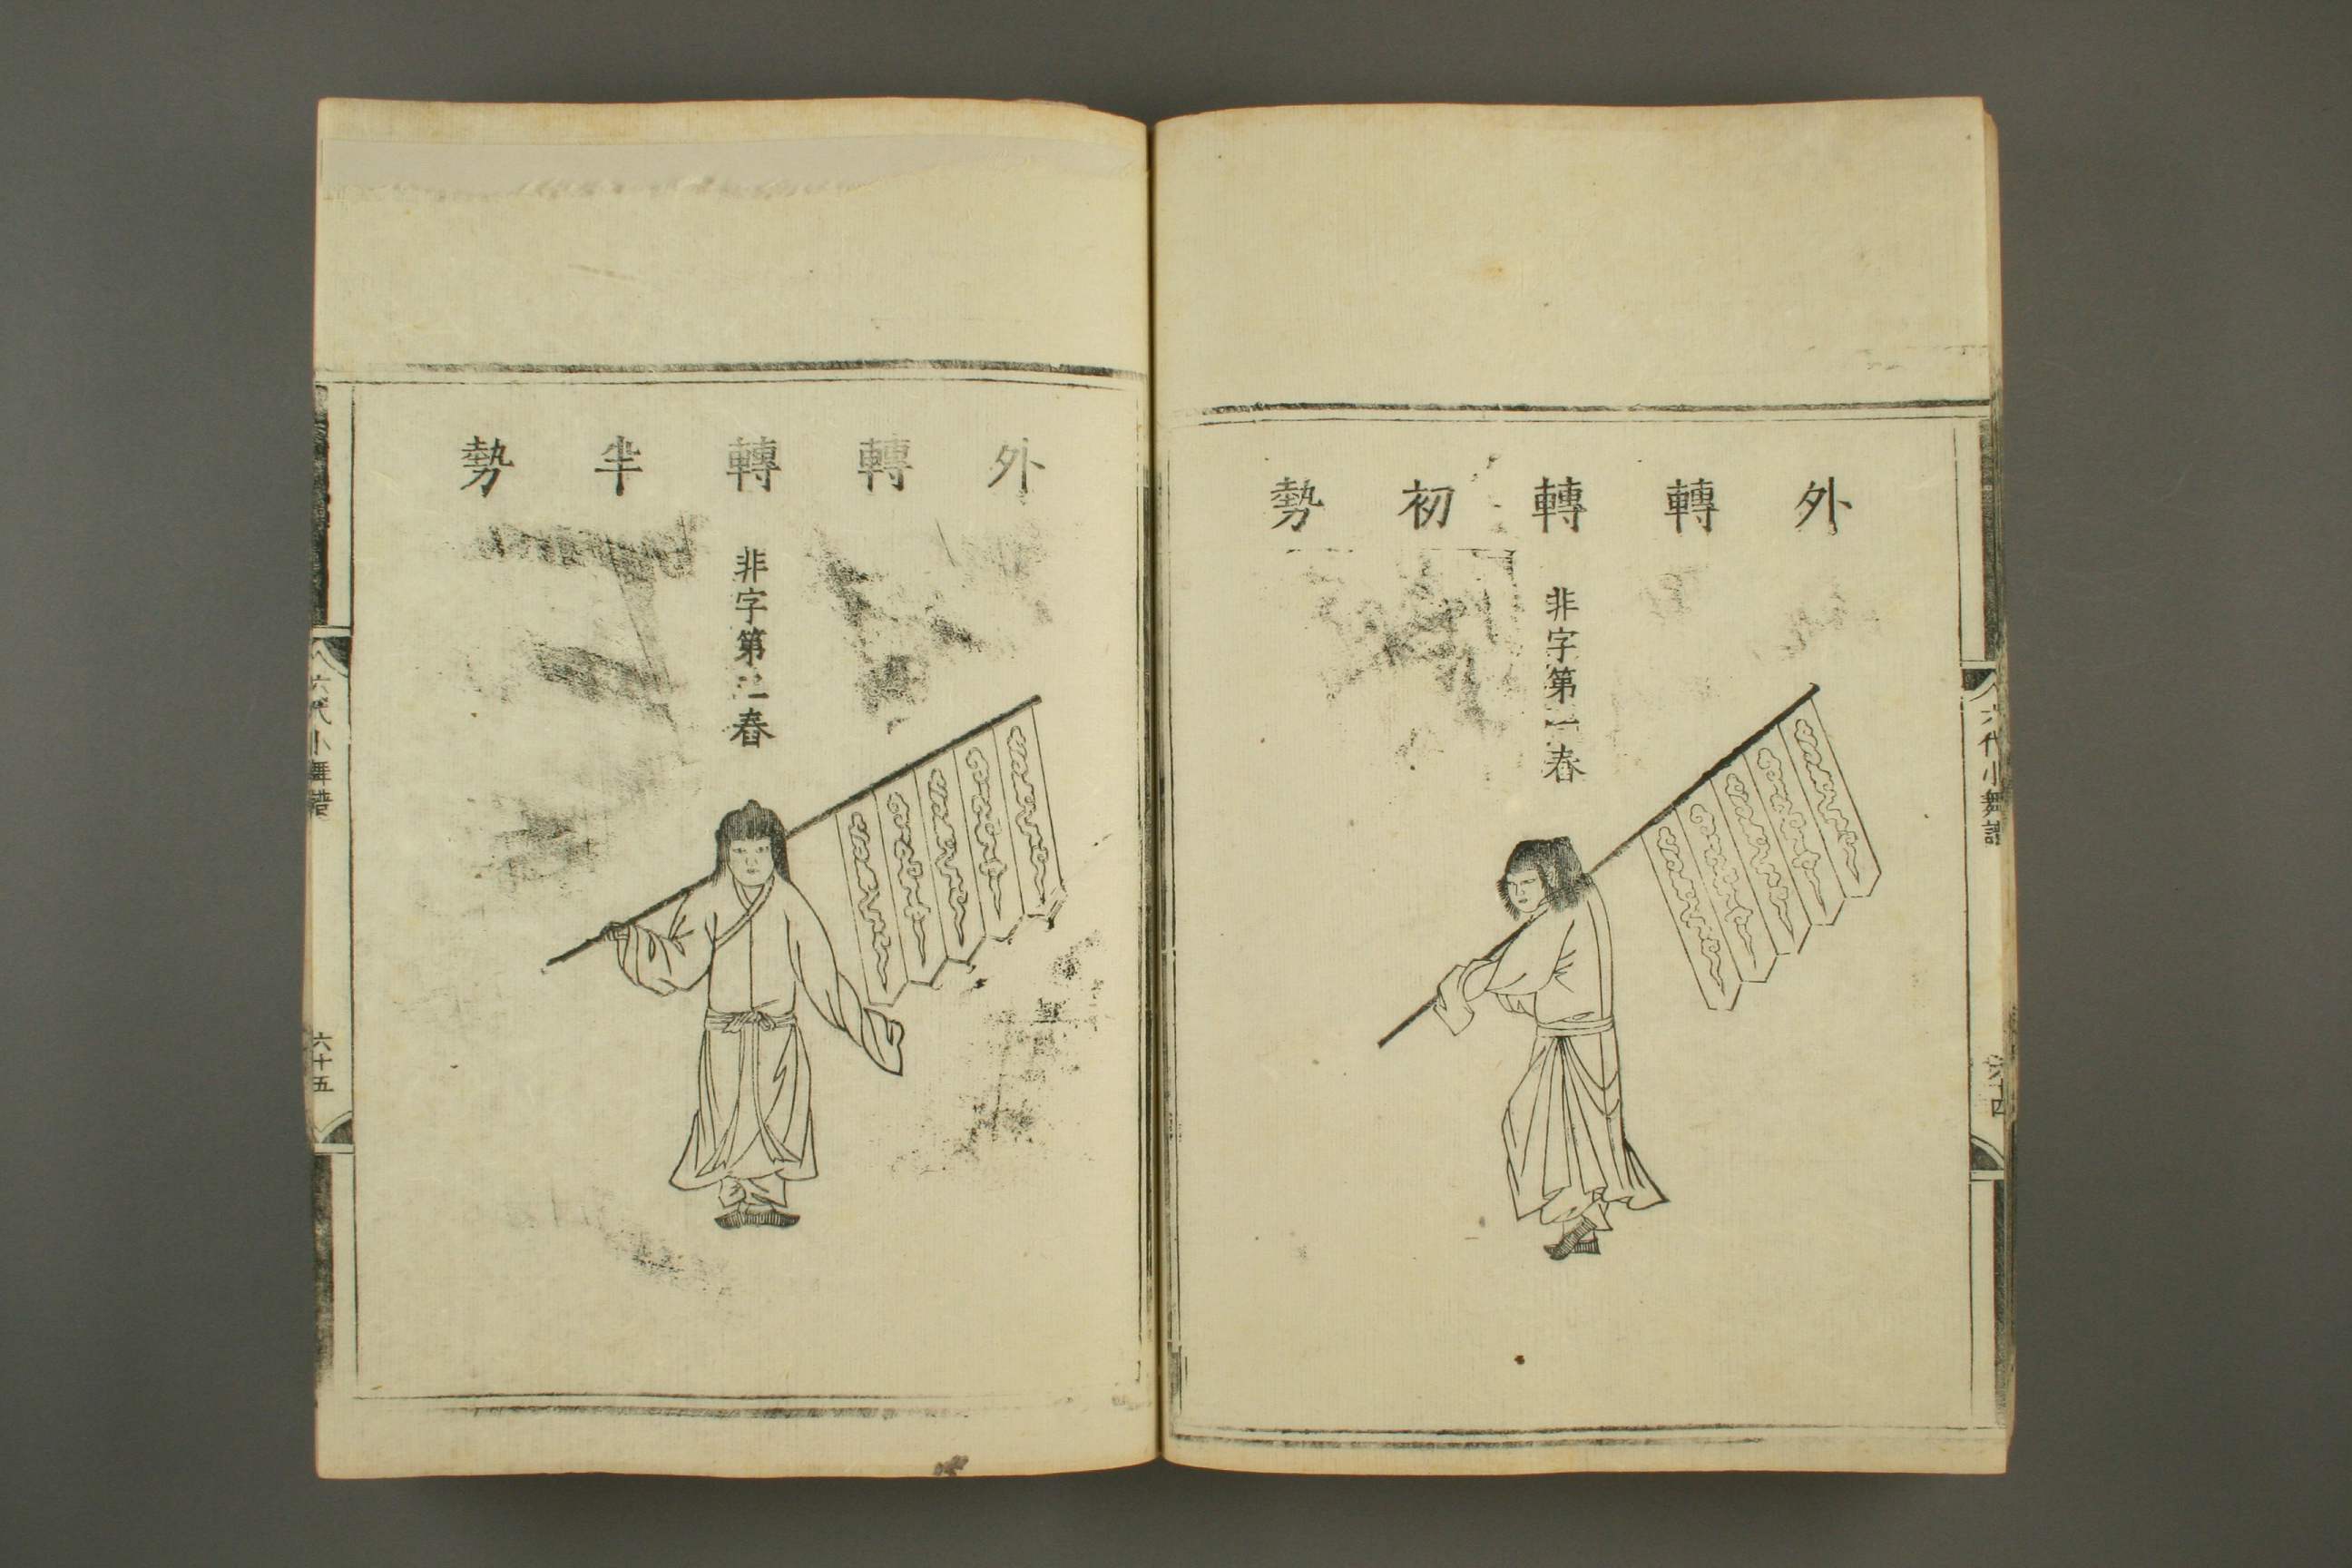 外轉轉初勢
非字第一舂
六代小舞譜
外轉轉半勢
非字第二舂
六代小舞譜
六十五